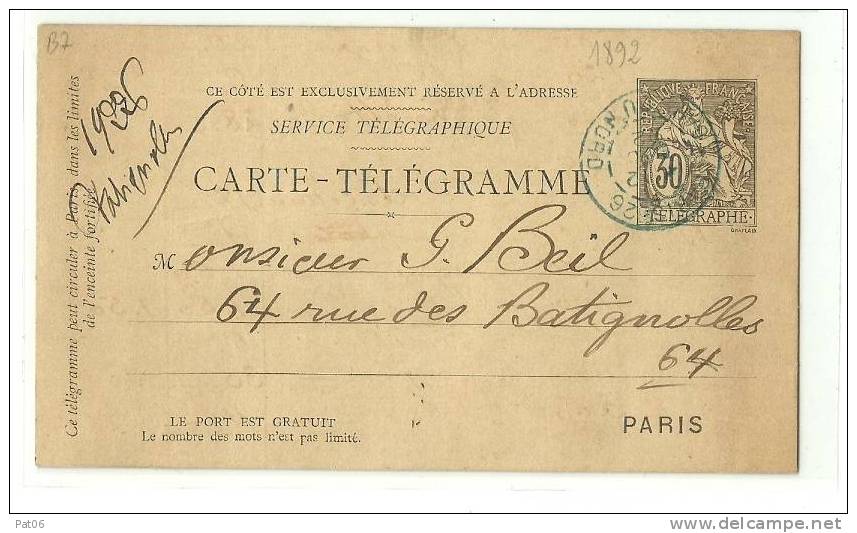 B7
1892
CE CÔTÉ EST EXCLUSIVEMENT RÉSERVÉ A L'ADRESSE
SERVICE TÉLÉGRAPHIQUE
CARTE-TÉLÉGRAMME
RÉPUBLIQUE FRANÇAISE
30
TÉLÉGRAPHE
CHAPLAIN
DU NORD
Monsieur G. Beil
64 rue des Batignolles
64
LE PORT EST GRATUIT
Le nombre des mots n'est pas limité.
PARIS
Ce télégramme peut circuler à Paris dans les limites
de l'enceinte fortifiée
Batignolles
Pat06
www.delcampe.net